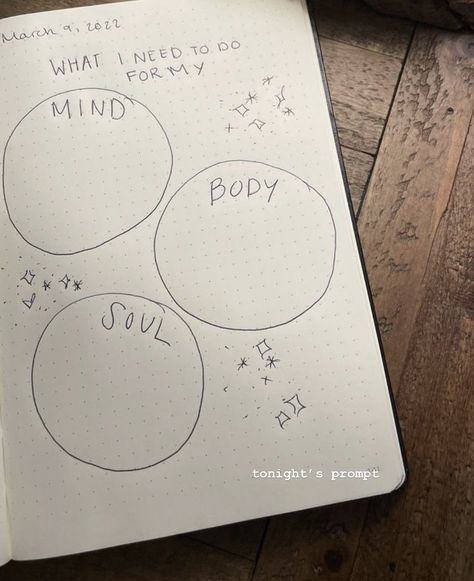 March 9, 2022
WHAT I NEED TO DO
FOR MY
MIND
BODY
SOUL
tonight's prompt